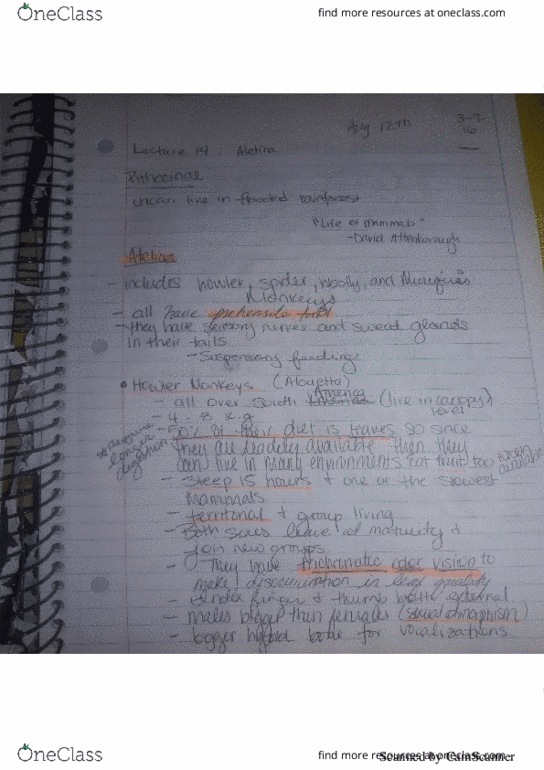 OneClass
find more resources at oneclass.com
Aug 12th
3-7-
16
Lecture 14: Atelina
Pitheciinae
uacari live in flooded rainforest
"Life of Mammals"
-David Attenborough
Atelina
- includes howler, spider, woolly, and
Monkeys
- all have prehensile tail
- they have sensory nerves and sweat glands
in their tails
- Suspensory feeding
• Howler Monkeys (Alouatta)
- all over South America (live in canopy level)
- 4-8 kg
- 50% of their diet is leaves so since
they are readily available then they
can live in many environments eat fruit too when available
* requires longer digestion
- sleep 15 hours + one of the slowest
mammals
- territorial + group living
- Both sexes leave at maturity +
join new groups
- They have trichromatic color vision to
make discrimination in leaf quality
- index finger + thumb both external
- males bigger than females (sexual dimorphism)
- bigger hyoid bone for vocalizations
OneClass
find more resources at oneclass.com
Scanned by CamScanner